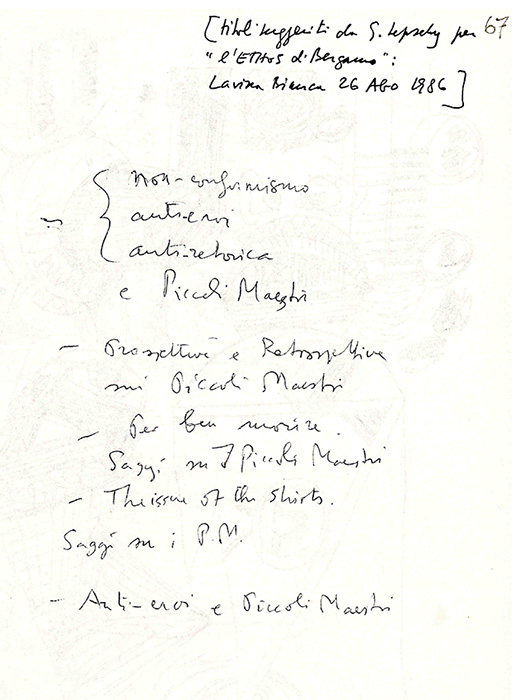 [titoli suggeriti da G. Lepschy per 67
"l'Ethos di Bergamo":
Lavina Bianca 26 Ago 1986]
non-conformismo
anti-eroi
anti-retorica
e Piccoli Maestri
– Prospettive e Retrospettive
sui Piccoli Maestri
– Per ben morire.
Saggi su I Piccoli Maestri
– The issue of the shirts.
Saggi su i P.M.
– Anti-eroi e Piccoli Maestri